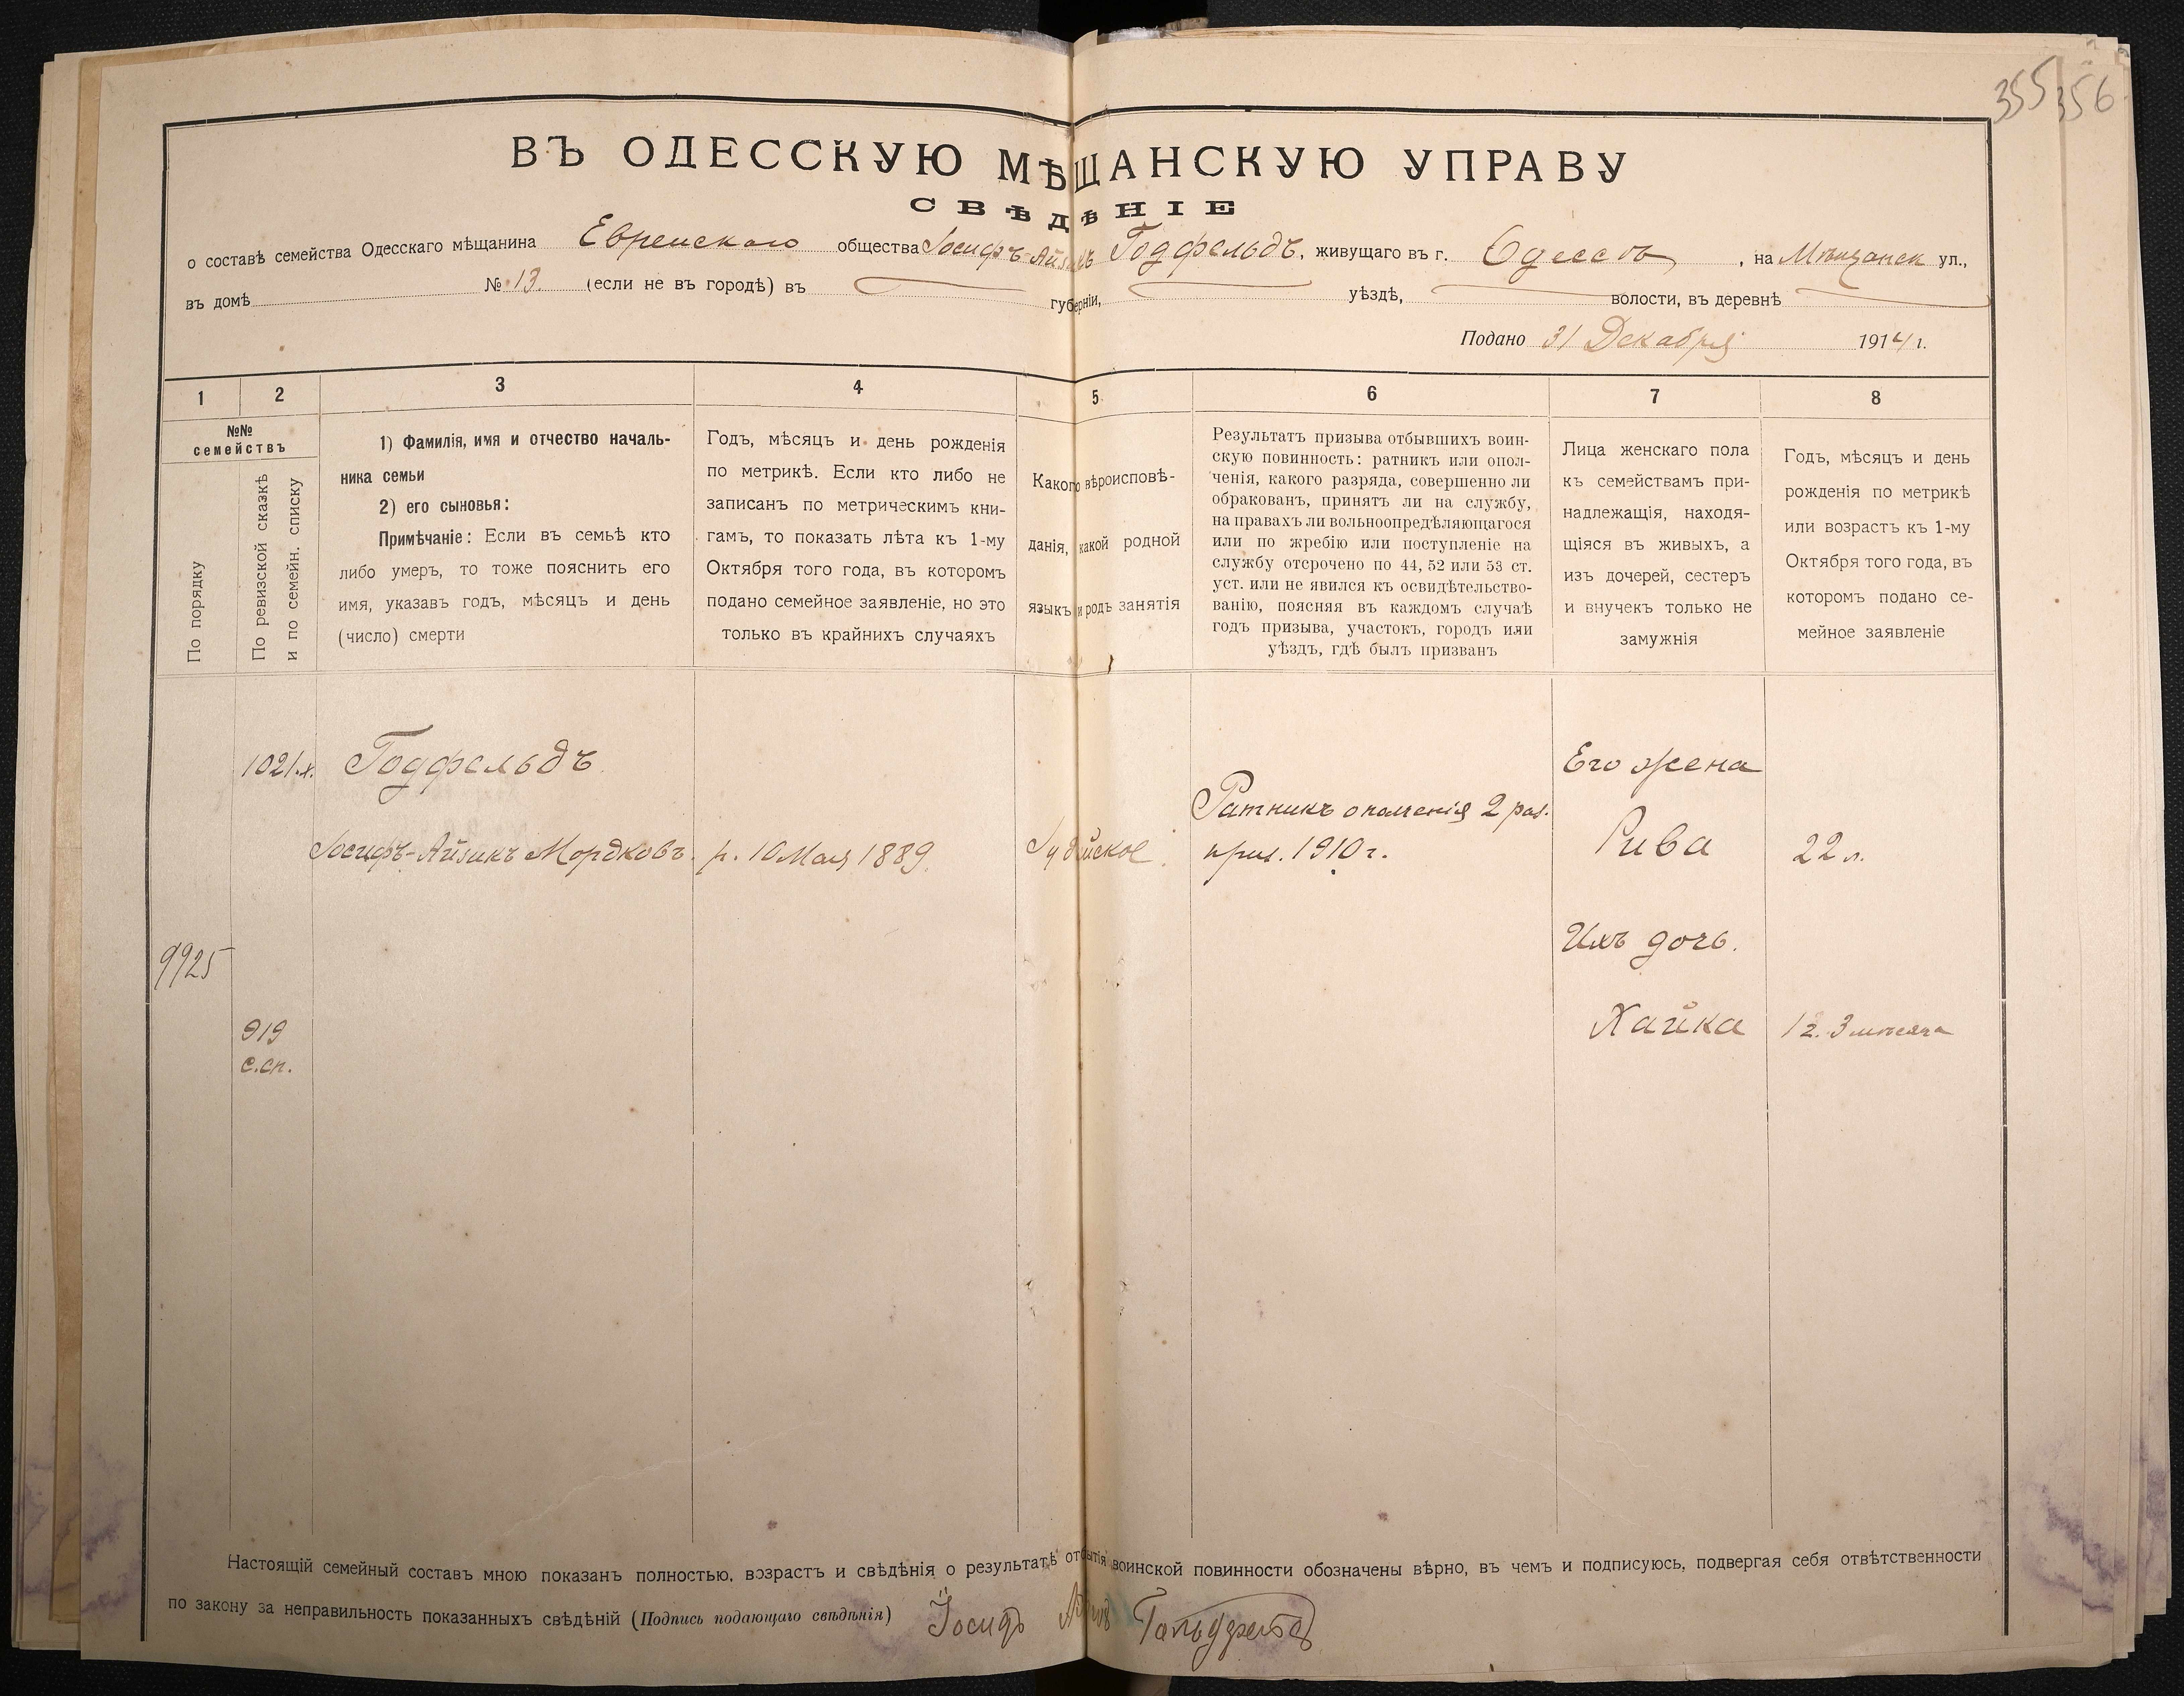 355 356
ВЪ ОДЕССКУЮ МѢЩАНСКУЮ УПРАВУ
СВѢДѢНІЕ
о составѣ семейства Одесскаго мѣщанина Еврейскаго общества Іосифъ-Айзикъ Годфельдъ, живущаго въ г. Одессѣ, на Мѣщанск ул.,
въ домѣ № 13. (если не въ городѣ) въ губерніи, уѣздѣ, волости, въ деревнѣ
Подано 31 Декабря 1914 г.
1 2 3 4 5 6 7 8
№№
семействъ
По порядку
По ревизской сказкѣ
и по семейн. списку
1) Фамилія, имя и отчество началь-
ника семьи
2) его сыновья:
Примѣчаніе: Если въ семьѣ кто
либо умеръ, то тоже пояснить его
имя, указавъ годъ, мѣсяцъ и день
(число) смерти
Годъ, мѣсяцъ и день рожденія
по метрикѣ. Если кто либо не
записанъ по метрическимъ кни-
гамъ, то показать лѣта къ 1-му
Октября того года, въ которомъ
подано семейное заявленіе, но это
только въ крайнихъ случаяхъ
Какого вѣроисповѣ-
данія, какой родной
языкъ и родъ занятія
Результатъ призыва отбывшихъ воин-
скую повинность: ратникъ или опол-
ченія, какого разряда, совершенно ли
обракованъ, принятъ ли на службу,
на правахъ ли вольноопредѣляющагося
или по жребію или поступленіе на
службу отсрочено по 44, 52 или 53 ст.
уст. или не явился къ освидѣтельство-
ванію, поясняя въ каждомъ случаѣ
годъ призыва, участокъ, городъ или
уѣздъ, гдѣ былъ призванъ
Лица женскаго пола
къ семействамъ при-
надлежащія, находя-
щіяся въ живыхъ, а
изъ дочерей, сестеръ
и внучекъ только не
замужнія
Годъ, мѣсяцъ и день
рожденія по метрикѣ
или возрастъ къ 1-му
Октября того года, въ
которомъ подано се-
мейное заявленіе
1021 Годфельдъ Его жена
Ратникъ ополченія 2 раз.
Іосифъ-Айзикъ Мордковъ. р. 10 Мая 1889. Іудейское. приз. 1910 г. Рива 22 л.
9925 Ихъ дочь.
919 Хайка 1 г. 3 мѣсяца
с.сп.
Настоящій семейный составъ мною показанъ полностью, возрастъ и свѣдѣнія о результатѣ отбытія воинской повинности обозначены вѣрно, въ чемъ и подписуюсь, подвергая себя отвѣтственности
по закону за неправильность показанныхъ свѣдѣній (Подпись подающаго свѣдѣнія) Іосифъ